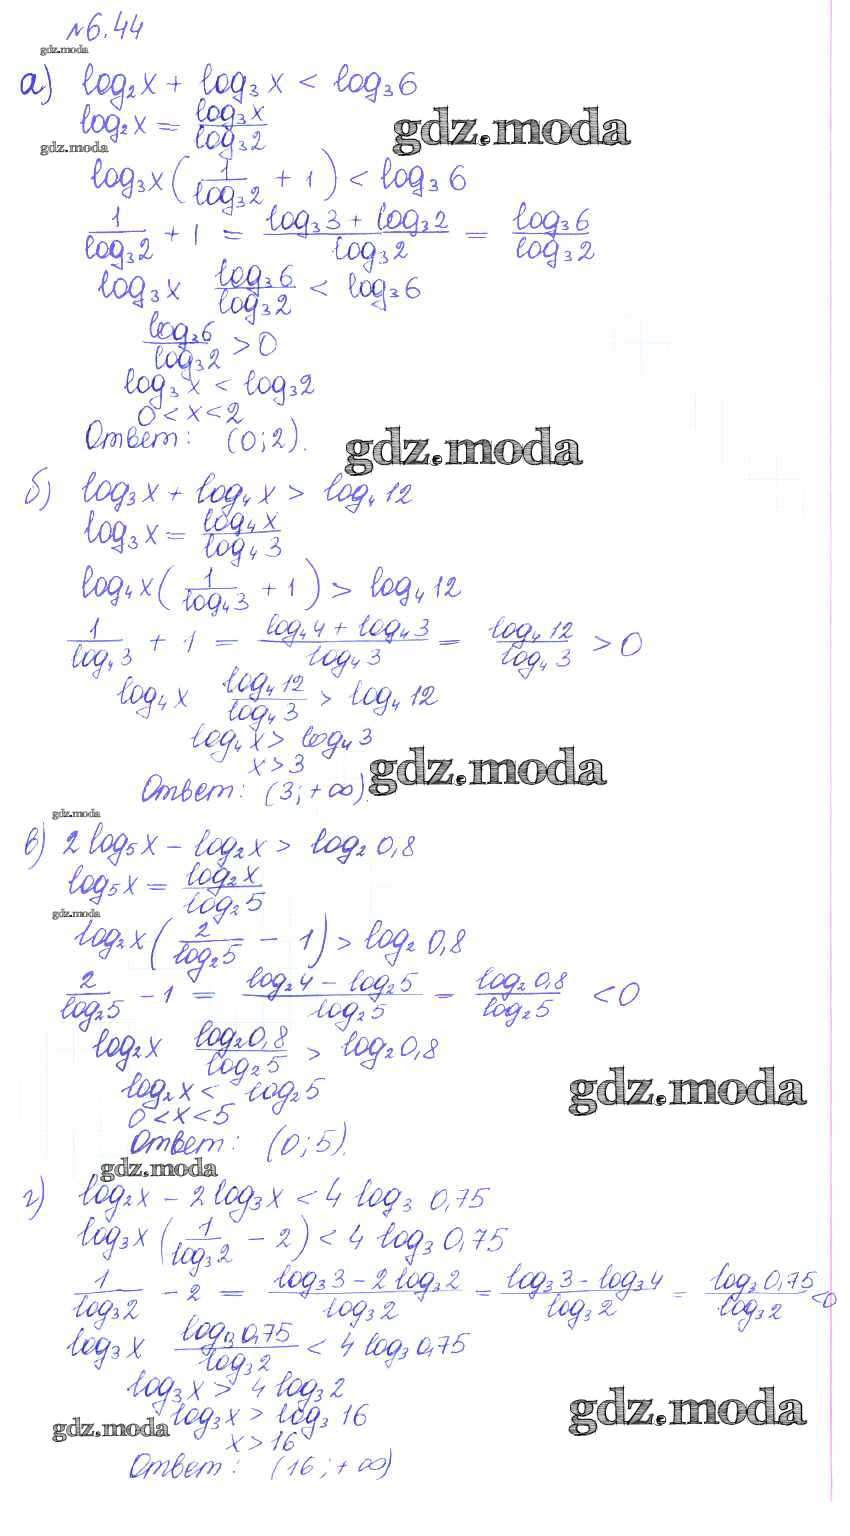 №6.44
gdz.moda
а) log₂x + log₃x < log₃6
log₂x = log₃x / log₃2
gdz.moda
gdz.moda
log₃x (1/log₃2 + 1) < log₃6
1/log₃2 + 1 = (log₃3 + log₃2)/log₃2 = log₃6/log₃2
log₃x log₃6/log₃2 < log₃6
log₃6/log₃2 > 0
log₃x < log₃2
0 < x < 2
Ответ: (0;2).
gdz.moda
б) log₃x + log₄x > log₄12
log₃x = log₄x/log₄3
log₄x (1/log₄3 + 1) > log₄12
1/log₄3 + 1 = (log₄4 + log₄3)/log₄3 = log₄12/log₄3 > 0
log₄x log₄12/log₄3 > log₄12
log₄x > log₄3
x > 3
gdz.moda
Ответ: (3;+∞).
gdz.moda
в) 2log₅x − log₂x > log₂0,8
log₅x = log₂x/log₂5
gdz.moda
log₂x (2/log₂5 − 1) > log₂0,8
2/log₂5 − 1 = (log₂4 − log₂5)/log₂5 = log₂0,8/log₂5 < 0
log₂x log₂0,8/log₂5 > log₂0,8
log₂x < log₂5
gdz.moda
0 < x < 5
Ответ: (0;5).
gdz.moda
г) log₂x − 2log₃x < 4 log₃ 0,75
log₃x (1/log₃2 − 2) < 4 log₃0,75
1/log₃2 − 2 = (log₃3 − 2log₃2)/log₃2 = (log₃3 − log₃4)/log₃2 = log₃0,75/log₃2 < 0
log₃x log₃0,75/log₃2 < 4 log₃0,75
log₃x > 4log₃2
log₃x > log₃16
gdz.moda
gdz.moda
x > 16
Ответ: (16;+∞)